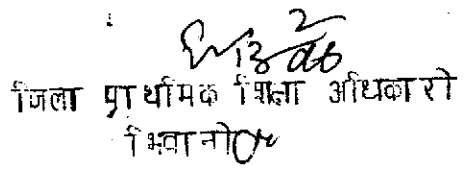 जिला प्राथमिक शिक्षा अधिकारी
भिवानी